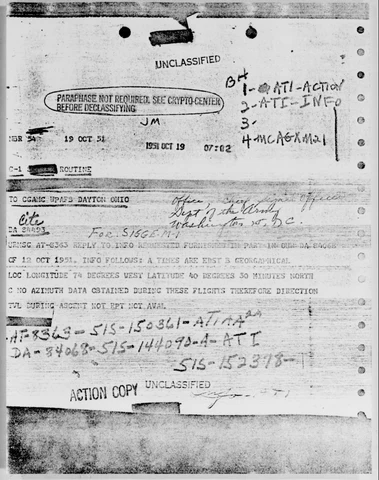 UNCLASSIFIED
PARAPHASE NOT REQUIRED. SEE CRYPTO-CENTER
BEFORE DECLASSIFYING.
JM
BH
1- ATI-ACTION
2- ATI-INFO
3-
4- MCAGXM21
19 OCT 51
1951 OCT 19 07:02
C-1 ROUTINE
TO CGAMC WPAFB DAYTON OHIO
Office, Chief Signal Officer
Dept of the Army
Washington 25, D.C.
Cite
DA 84493
For: SIGGE M-1
AT-8363 REPLY TO INFO
OF 12 OCT 1951. INFO FOLLOWS: A TIMES ARE EDST B GEOGRAPHICAL
LOC LONGITUDE 74 DEGREES WEST LATITUDE 40 DEGREES 30 MINUTES NORTH
C NO AZIMUTH DATA OBTAINED DURING THESE FLIGHTS THEREFORE DIRECTION
TVL DURING ASCENT NOT RPT NOT AVAL
AT-8363-515-150361-ATIAA
DA-84068-515-144090-A-ATI
515-152398-
ACTION COPY
UNCLASSIFIED